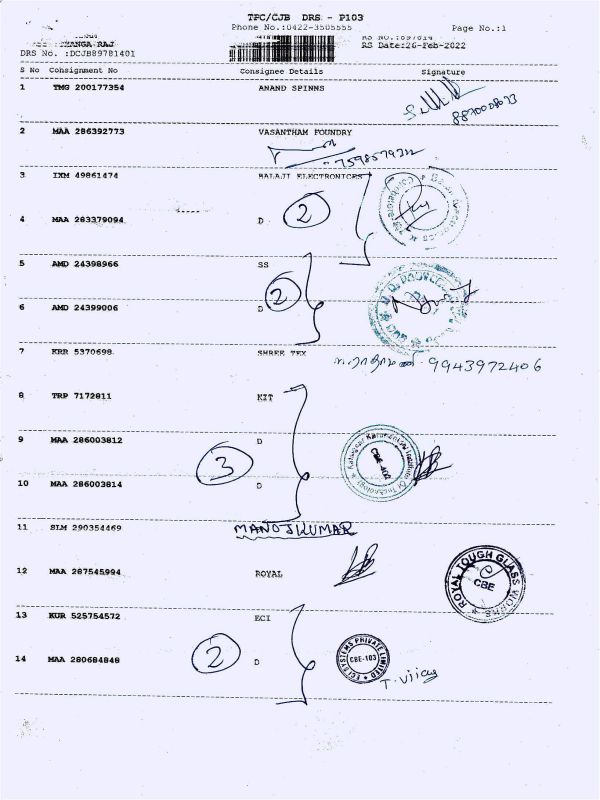 TPC/CJB DRS - P103
Phone No.:0422-3505555 Page No.:1
THANGA RAJ RS Date:26-Feb-2022
DRS No. :DCJB89781401
S No Consignment No Consignee Details Signature
1 TMG 200177354 ANAND SPINNS
2 MAA 286392773 VASANTHAM FOUNDRY
3 IXM 49861474 BALAJI ELECTRONICS
4 MAA 283379094 D 2
5 AMD 24398966 SS
2
6 AMD 24399006 D
7 KRR 5370698 SHREE TEX
9943972406
8 TRP 7172811 KIT
9 MAA 286003812 D
3
Karpagam Institute Of Technology
CBE-402
10 MAA 286003814 D
11 SLM 290354469 MANOJKUMAR
12 MAA 287545994 ROYAL
ROYAL TOUGH GLASS WORKS
CBE
13 KUR 525754572 ECI
14 MAA 280684848 D 2
SYSTEMS PRIVATE LIMITED
CBE-103
T. Vijay